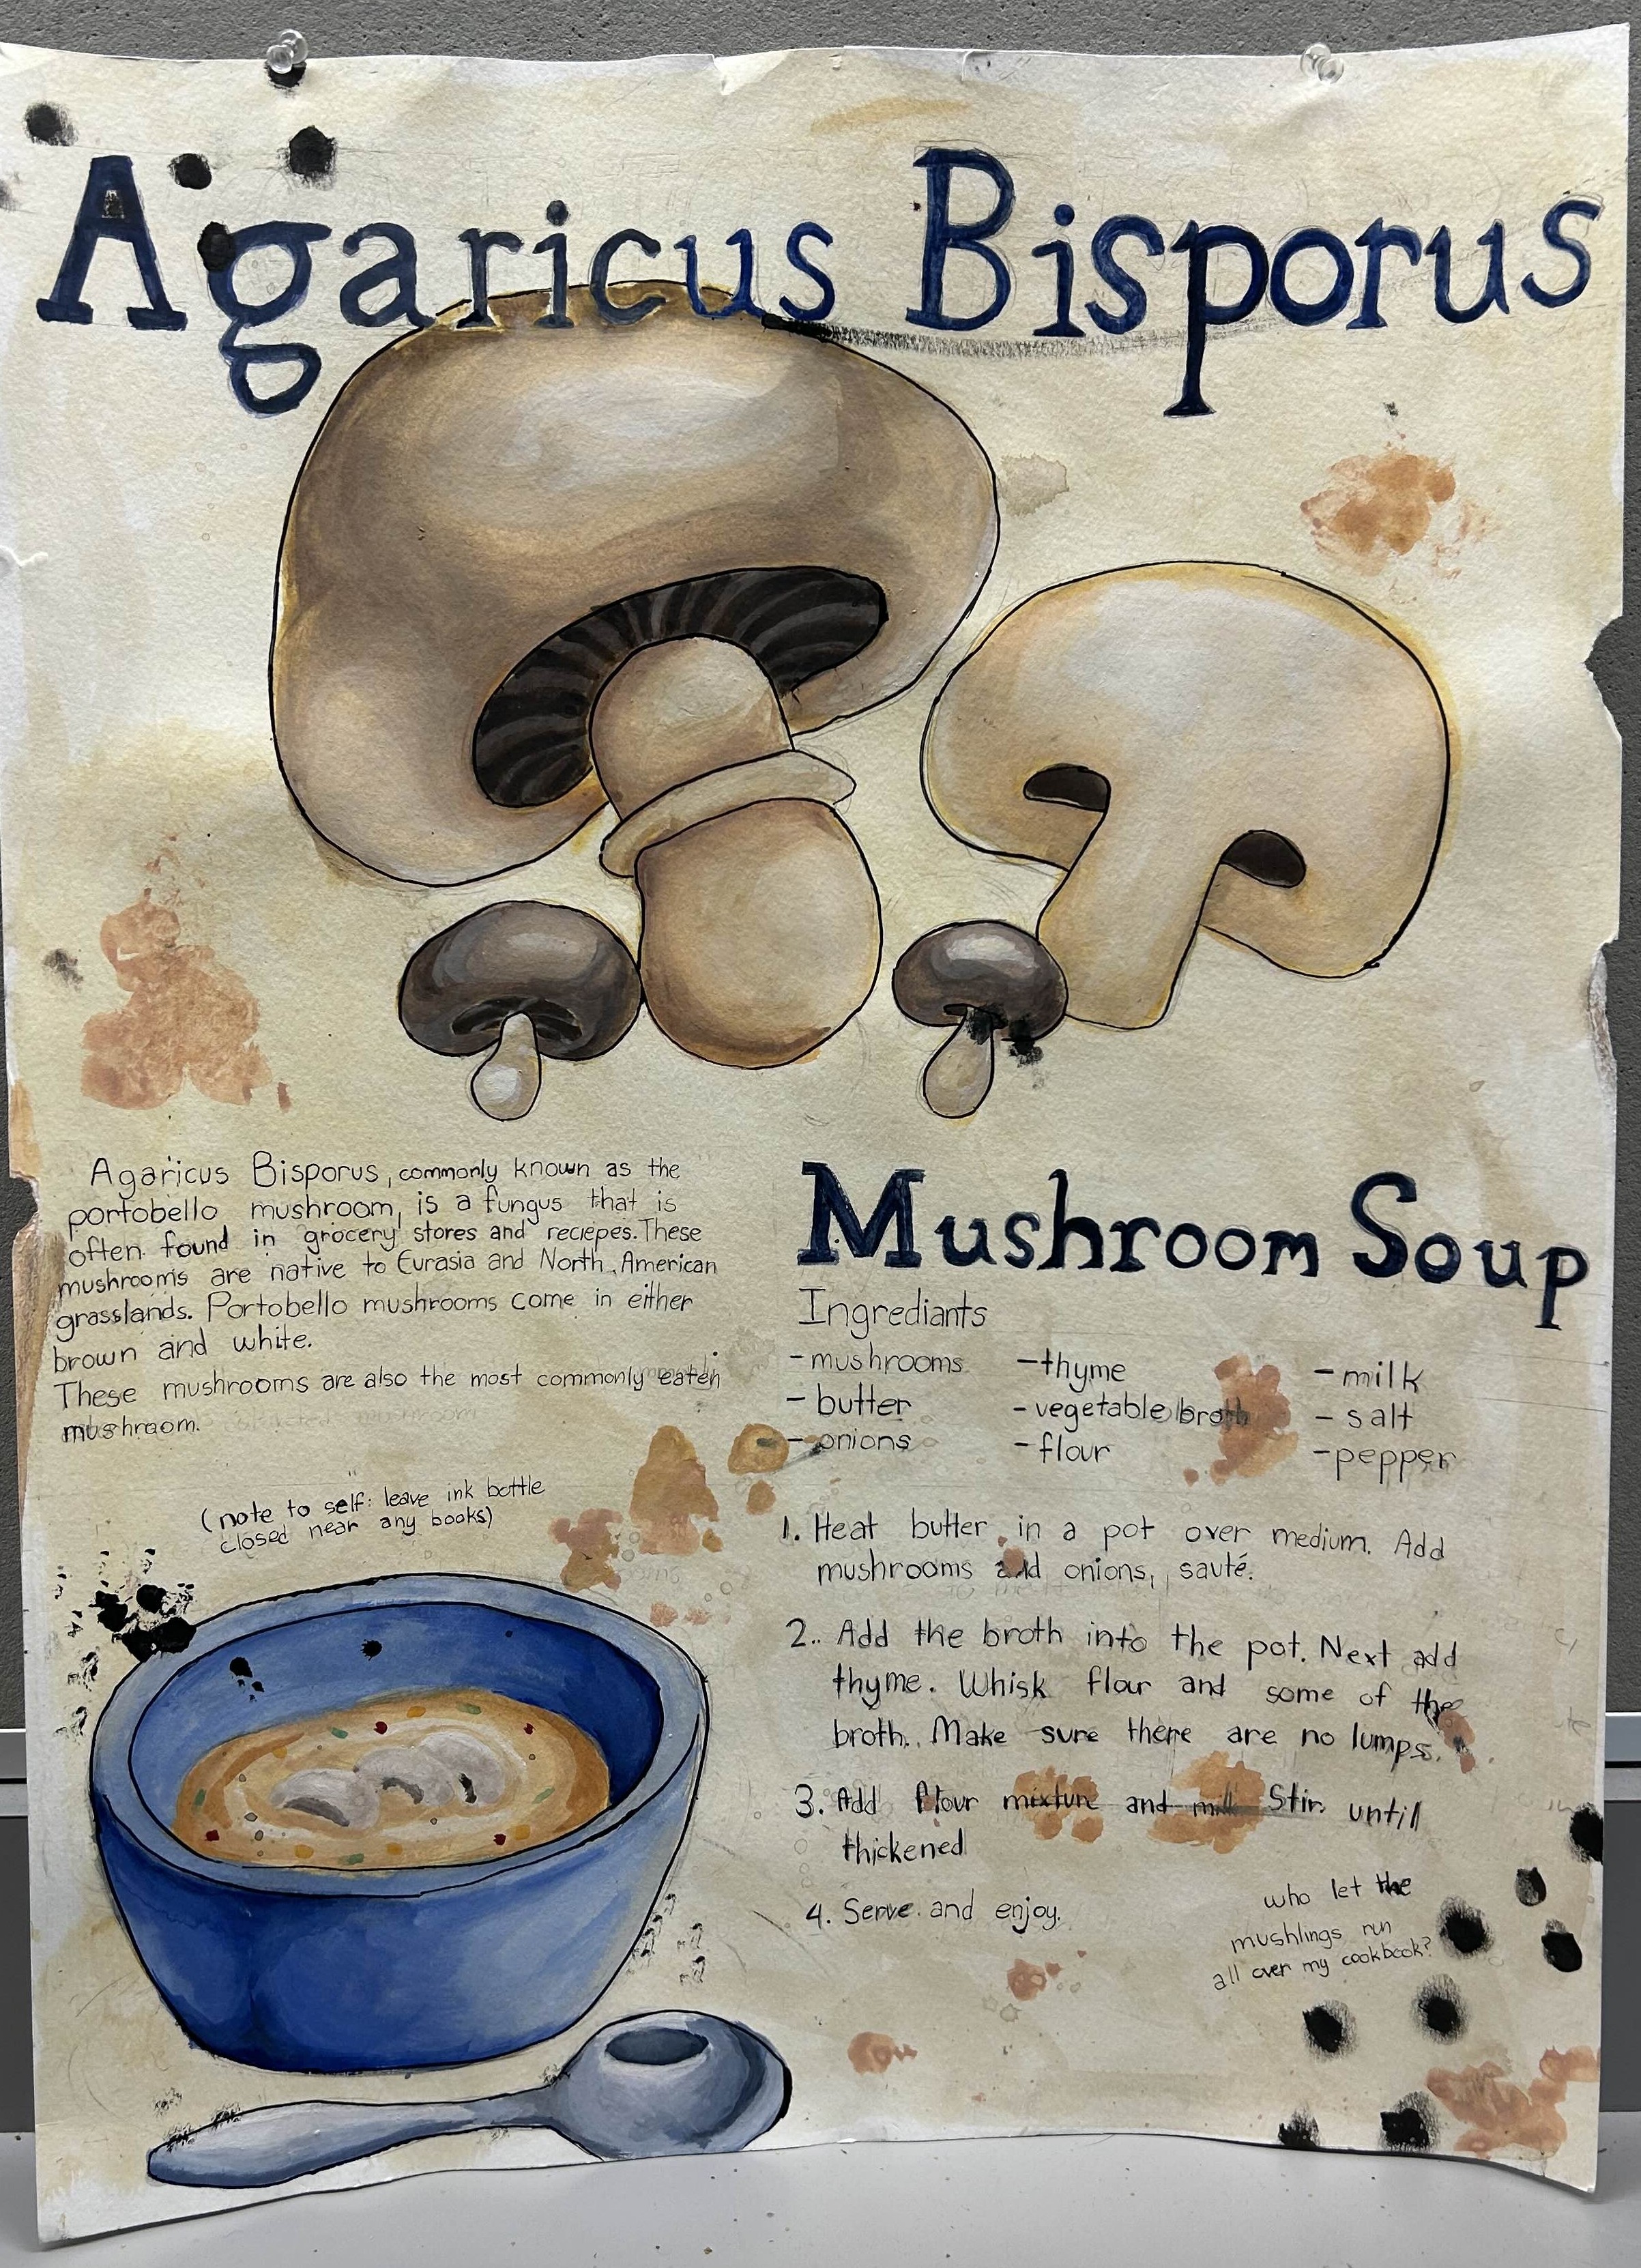 Agaricus Bisporus
Agaricus Bisporus, commonly known as the
portobello mushroom, is a fungus that is
often found in grocery stores and reciepes. These
mushrooms are native to Eurasia and North American
grasslands. Portobello mushrooms come in either
brown and white.
These mushrooms are also the most commonly eaten
mushroom.
(note to self: leave ink bottle
closed near any books)
Mushroom Soup
Ingrediants
- mushrooms
- butter
- onions
- thyme
- vegetable broth
- flour
- milk
- salt
- pepper
1. Heat butter in a pot over medium. Add
mushrooms and onions, sauté.
2. Add the broth into the pot. Next add
thyme. Whisk flour and some of the
broth. Make sure there are no lumps.
3. Add flour mixture and milk Stir until
thickened
4. Serve and enjoy.
who let the
mushlings run
all over my cookbook?